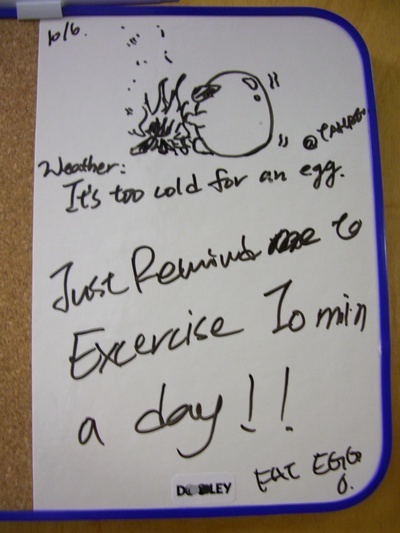 10/6.
@TAMAGO
Weather:
It's too cold for an egg.
Just Remind me to
Excercise 10 min
a day!!
EAT EGG